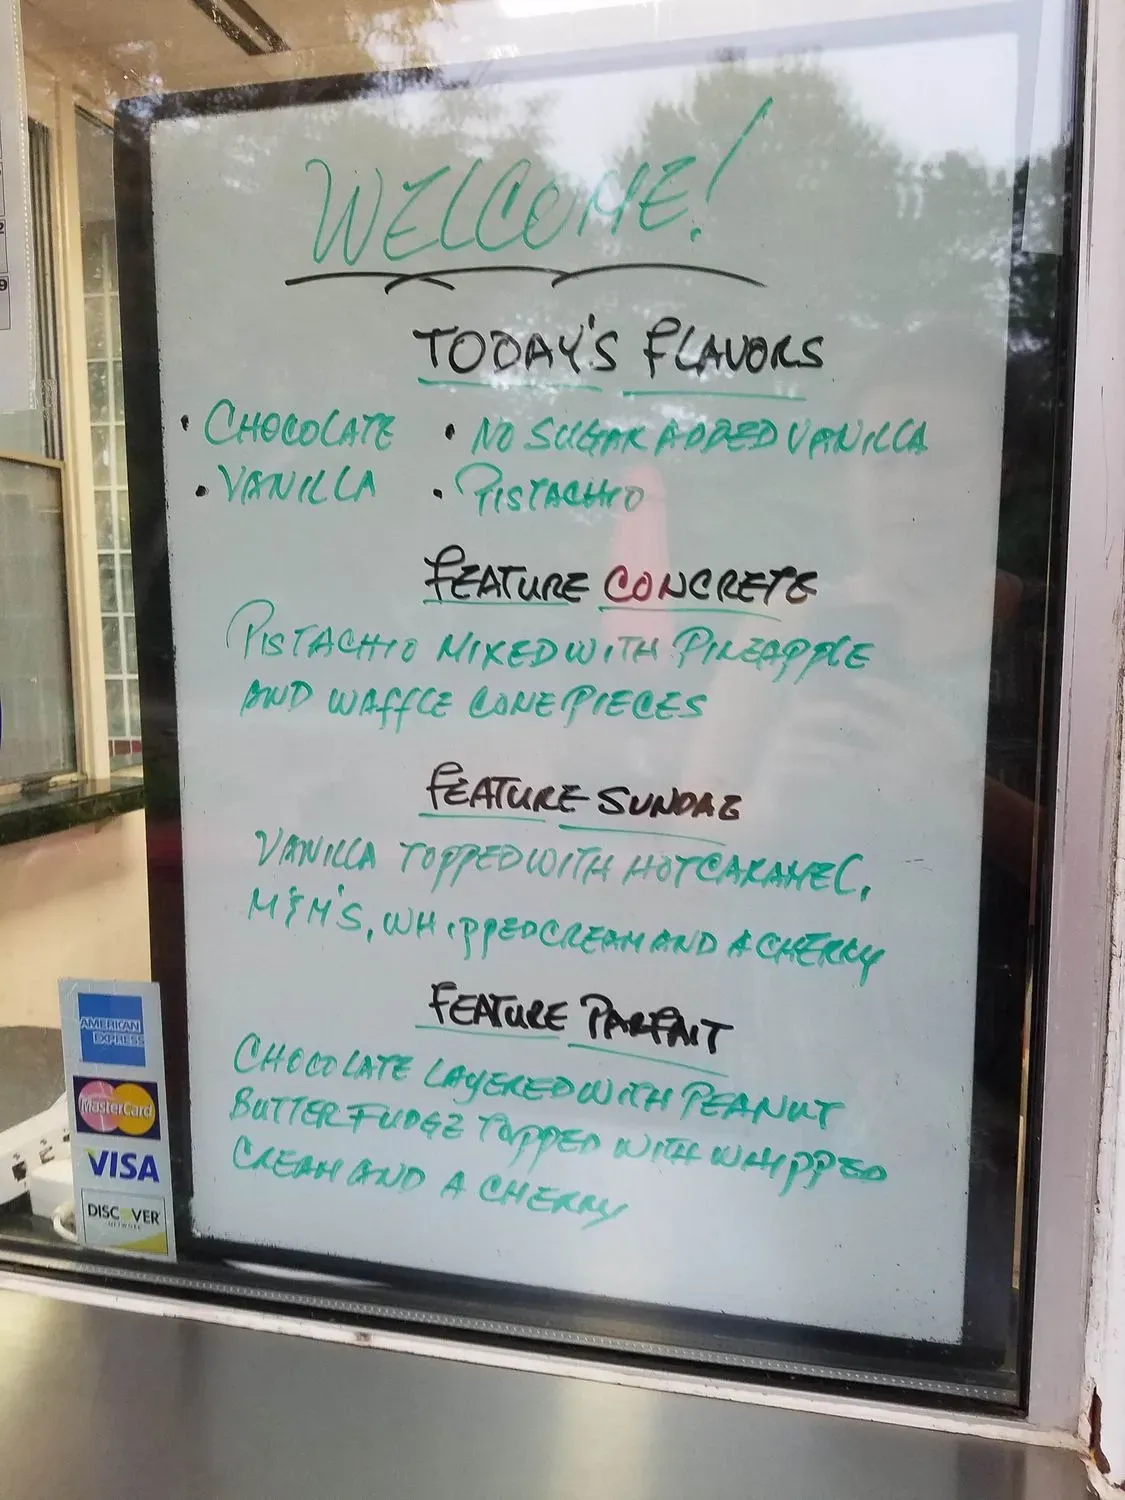 WELCOME!
TODAY'S FLAVORS
• CHOCOLATE • NO SUGAR ADDED VANILLA
• VANILLA • PISTACHIO
FEATURE CONCRETE
PISTACHIO MIXED WITH PINEAPPLE
AND WAFFLE CONE PIECES
FEATURE SUNDAE
VANILLA TOPPED WITH HOT CARAMEL,
M&M'S, WHIPPED CREAM AND A CHERRY
FEATURE PARFAIT
CHOCOLATE LAYERED WITH PEANUT
BUTTER FUDGE TOPPED WITH WHIPPED
CREAM AND A CHERRY
AMERICAN
EXPRESS
MasterCard
VISA
DISCOVER
NETWORK
2
9